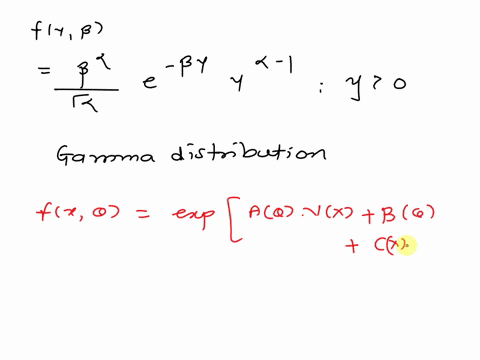 f(y, β)
= β^α / Γα e^{-βy} y^{α-1} : y > 0
Gamma distribution
f(x, θ) = exp [ A(θ).V(x) + B(θ)
+ C(x).